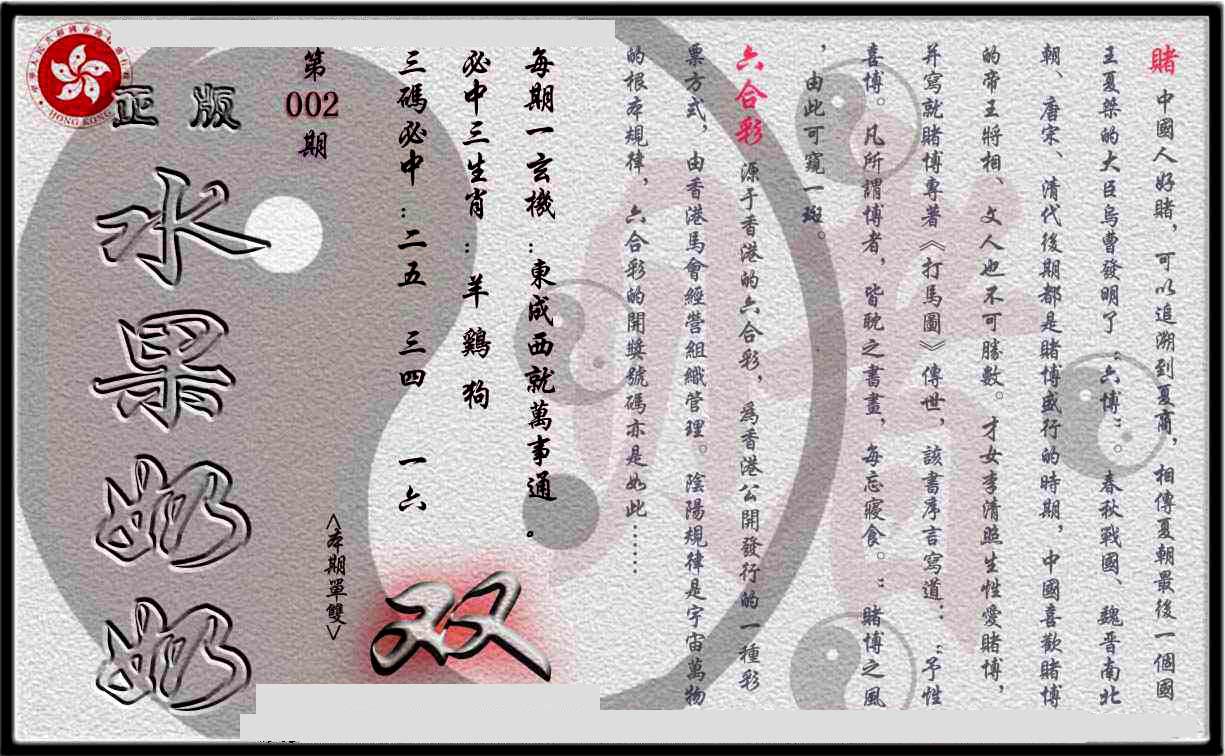 賭 中國人好賭，可以追溯到夏商，相傳夏朝最後一個國
王夏桀的大臣烏曹發明了“六博”。春秋戰國、魏晋南北
朝、唐宋、清代後期都是賭博盛行的時期，中國喜歡賭博
的帝王將相、文人也不可勝數。才女李清照生性愛賭博，
并寫就賭博專著《打馬圖》傳世，該書序言寫道：“予性
喜博。凡所謂博者，皆耽之書畫，每忘寢食。”賭博之風
，由此可窺一斑。
六合彩 源于香港的六合彩，為香港公開發行的一種彩
票方式，由香港馬會經營組織管理。陰陽規律是宇宙萬物
的根本規律，六合彩的開獎號碼亦是如此……
每期一玄機：東成西就萬事通。
必中三生肖：羊 鷄 狗
三碼必中：二五 三四 一六
<本期單雙>
双
第
002
期
正版
水果奶奶
HONG KONG